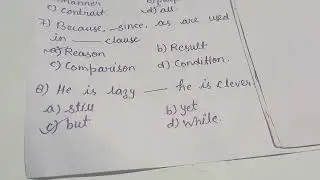 c) contrast d) all
7) Because, since, as are used
in —— clause
a) Reason b) Result
c) Comparison d) Condition.
8) He is lazy —— he is clever
a) still b) yet
c) but d) while.